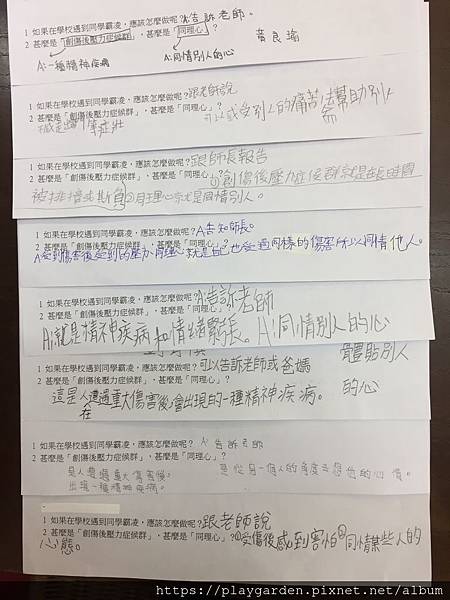 1 如果在學校遇到同學霸凌,應該怎麼做呢?A:告訴老師。
2 甚麼是「創傷後壓力症候群」,甚麼是「同理心」?
A:一種精神疾病
A:同情別人的心
1 如果在學校遇到同學霸凌,應該怎麼做呢?跟老師說
2 甚麼是「創傷後壓力症候群」,甚麼是「同理心」?可以感受別人的痛苦
幫助別人
1 如果在學校遇到同學霸凌,應該怎麼做呢?跟師長報告
2 甚麼是「創傷後壓力症候群」,甚麼是「同理心」?①創傷後壓力症侯群就是在長時間
同情別人。
1 如果在學校遇到同學霸凌,應該怎麼做呢?A告知師長。
2 甚麼是「創傷後壓力症候群」,甚麼是「同理心」?
A受到傷害後受到的壓力 同理心就是自己也受過同樣的傷害所以同情他人。
1 如果在學校遇到同學霸凌,應該怎麼做呢?A:告訴老師
2 甚麼是「創傷後壓力症候群」,甚麼是「同理心」?
A:就是精神疾病和情緒緊張。A:同情別人的心
1 如果在學校遇到同學霸凌,應該怎麼做呢?可以告訴老師或爸媽
體貼別人
2 甚麼是「創傷後壓力症候群」,甚麼是「同理心」?
的心
這是人在遭遇重大傷害後,會出現的一種精神疾病。
1 如果在學校遇到同學霸凌,應該怎麼做呢?A:告訴老師
2 甚麼是「創傷後壓力症候群」,甚麼是「同理心」?
是人遭遇重大傷害後,
是從另一個人的角度去想他的心情。
出現一種精神疾病。
1 如果在學校遇到同學霸凌,應該怎麼做呢?跟老師說
2 甚麼是「創傷後壓力症候群」,甚麼是「同理心」?①受傷後感到害怕②同情某些人的
心態。
https://playgarden.pixnet.net/album